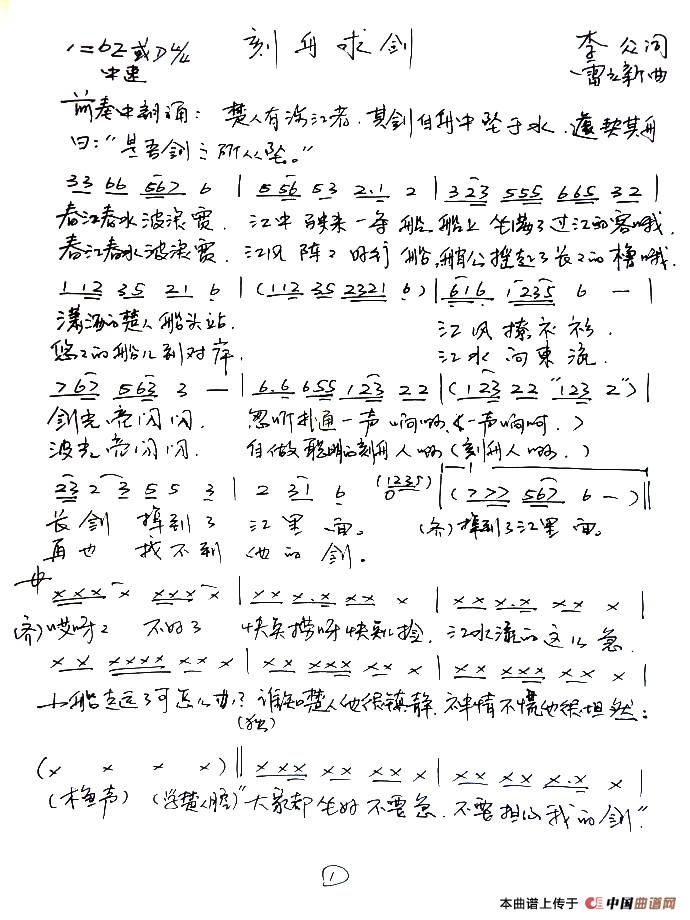 1=bE或D 4/4 刻舟求剑 李众词
中速 雷立新曲
前奏中朗诵：楚人有涉江者，其剑自舟中坠于水，遽契其舟
曰："是吾剑之所从坠。"
33 66 567 6 | 5 56 53 2·1 2 | 323 555 665 32 |
春江春水波浪宽，江中驶来一条船，船上坐满了过江的客哦。
春江春水波浪宽，江风阵阵好行船，艄公摇起了长长的橹哦。
112 35 21 6 | (112 35 2321 6) | 616 1235 6 — |
潇洒的楚人船头站， 江风撩衣衫，
悠悠的船儿到对岸， 江水向东流，
767 563 3 — | 6·6 655 123 22 | (123 22 "123 2") |
剑光亮闪闪， 忽听扑通一声响呐（一声响呵，）
波光亮闪闪， 自做聪明的刻舟人呐（刻舟人呐，）
23 2 3 5 5 3 | 2 31 6 (1235) 0 | (777 567 6 —) ‖
长剑 掉到了 江里面。 (齐)掉到了江里面。
再也 找不到 他的剑。
xxx x xxx x | xx x·x xx x | xx x·x xx x |
(齐)哎呀呀 不好了 快点捞呀快点捡，江水流的这么急，
xx xxxx xx x | xx xxx xx x | xx xxx xx x |
小船走远了可怎么办？谁知楚人他很镇静，神情不慌他很坦然：
(独)
(x x x x) ‖ xxx xx xx x | xx xx x·x x |
(木鱼声) (学楚人腔)"大家都坐好不要急，不要担心我的剑"
1
本曲谱上传于 中国曲谱网